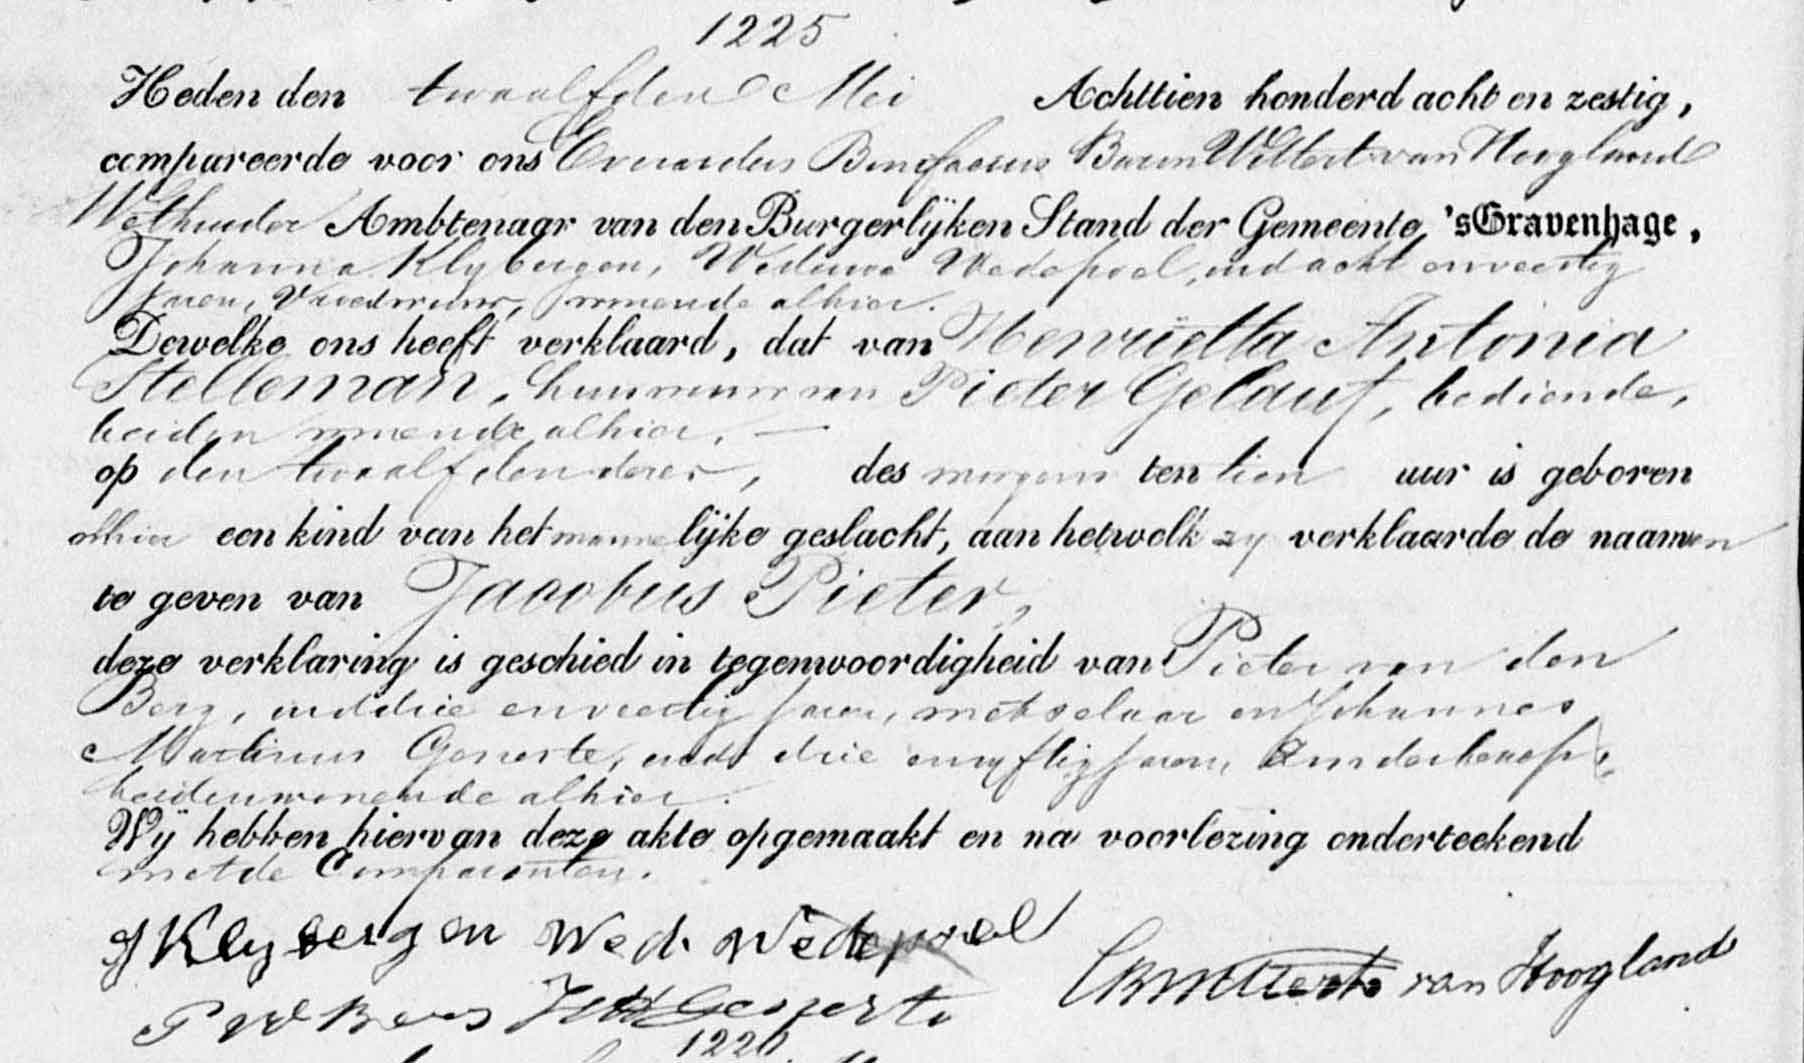 1225
Heden den twaalfden Mei Achttien honderd acht en zestig,
compareerde voor ons Everardus Bonifacius Baron Wittert van Hoogland
Wethouder Ambtenaar van den Burgerlijken Stand der Gemeente 'sGravenhage,
Johanna Klybergen, Weduwe Wedepoel, oud acht en veertig
Jaren, Vroedvrouw, wonende alhier.
Dewelke ons heeft verklaard, dat van Henriëtta Antonia
Stelleman, huisvrouw van Pieter Gelauf, bediende,
beiden wonende alhier. —
op den twaalfden dezer, des morgens ten tien uur is geboren
alhier een kind van het mannelijke geslacht, aan hetwelk zy verklaarde de naamen
te geven van Jacobus Pieter,
deze verklaring is geschied in tegenwoordigheid van Pieter van den
Berg, oud drie en veertig Jaren, metselaar en Johannes
Martinus, oud drie en vyftig Jaren,
beiden wonende alhier.
Wij hebben hiervan deze akte opgemaakt en na voorlezing onderteekend
met de Comparanten.
J Klybergen Wed. Wedepoel
van Hoogland
1226